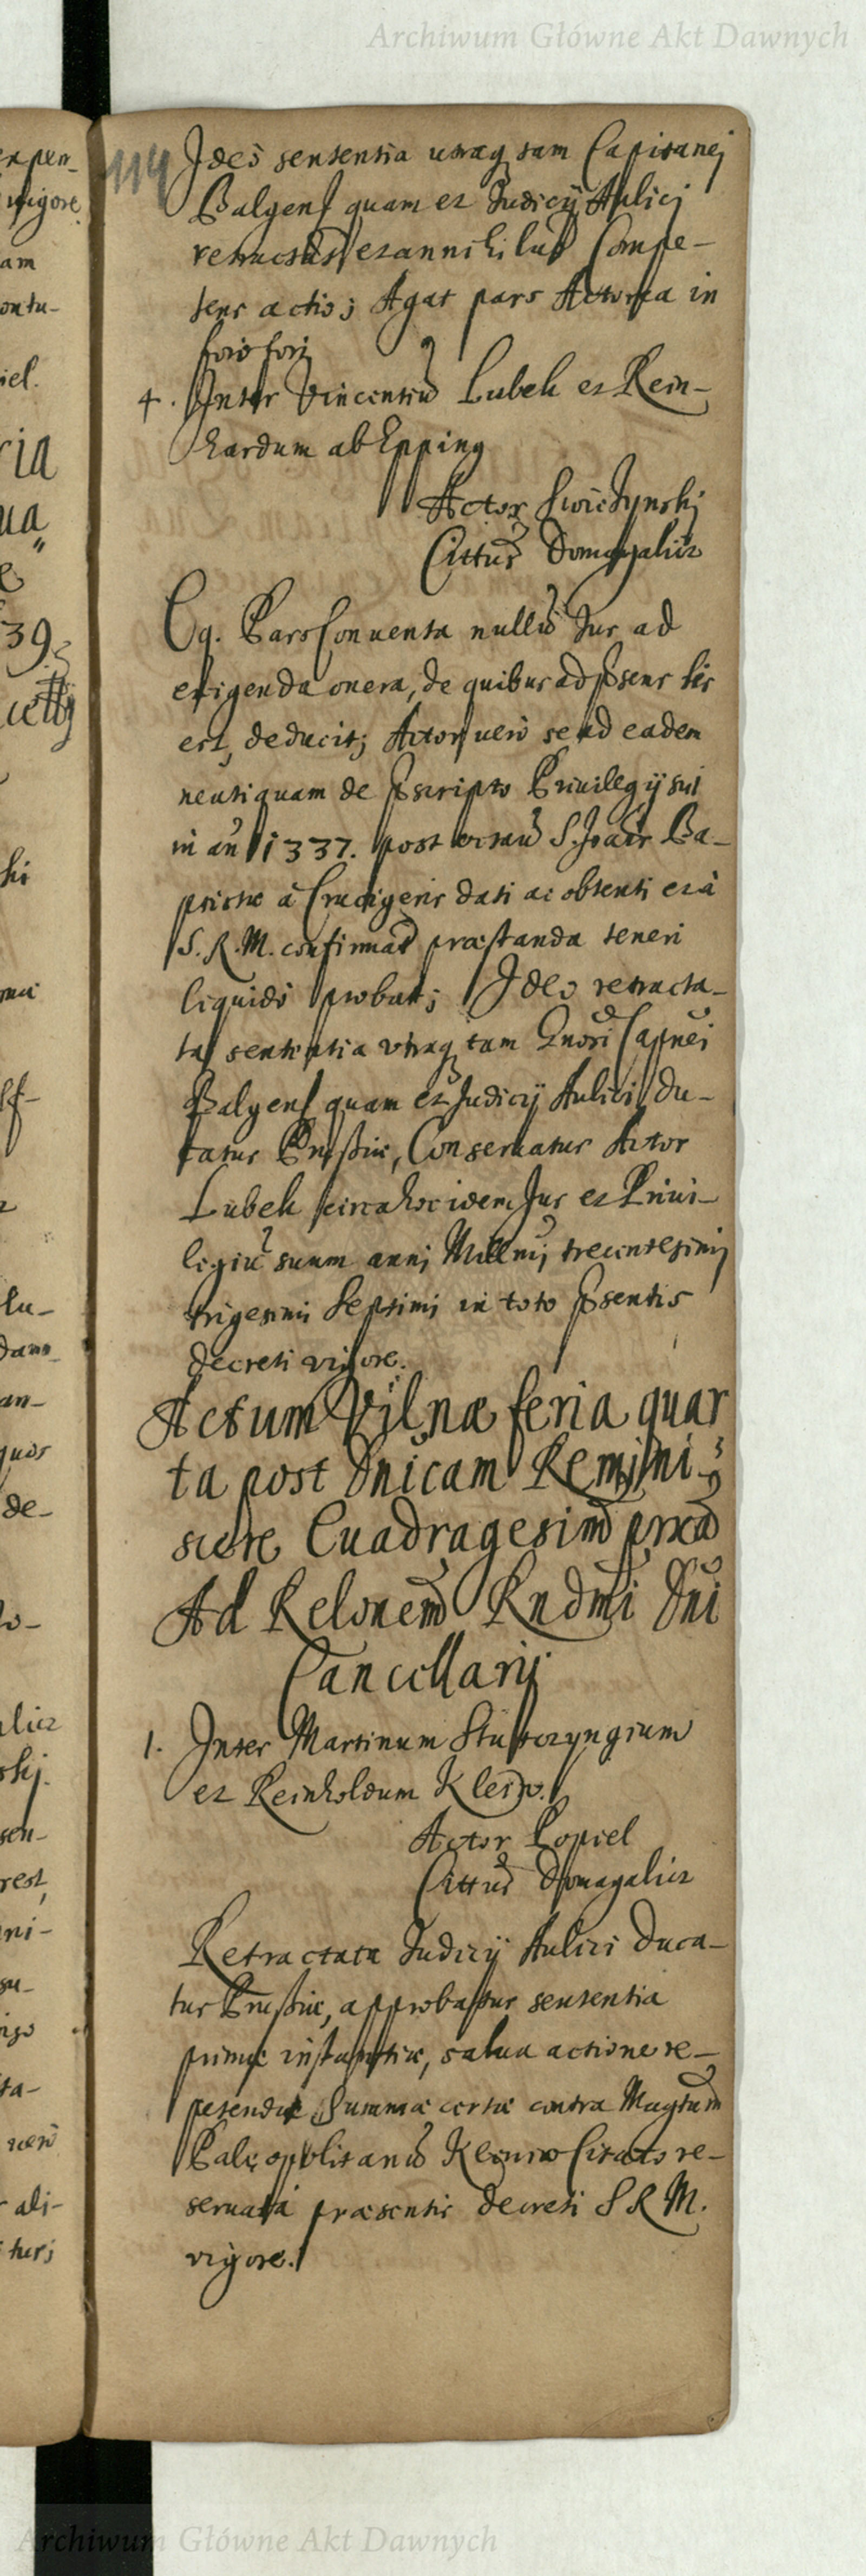 Archiwum Główne Akt Dawnych
114 Ideo sententia utraq tam Capitanej
Balgens quam et Judicij Aulici
retractatis et annihilatis Compe-
tens actio; Agat pars Actorea in
foro fori
4. Inter Vincentiu Lubek et Rein-
hardum ab Epping
Actor Swiczynskj
Cittus Domagalicz
Cq. Pars Conventa nullu Jus ad
exigenda onera, de quibus ad psens lis
est, deducit; Actor vero se ad eadem
neutiquam de pscripto Privilegij sui
in an 1337. post octau S. Joais Ba-
ptistæ a Crucigeris dati ac obtenti et à
S. R. M. confirmat præstanda teneri
liquido probat; Ideo retracta-
ta sententia utraq tam Capnei
Balgens quam et Judicij Aulici Du-
catus Prussiæ, Conservatur Actor
Lubek circa hoc idem Jus et Privi-
legiu suum anni Millmi trecentesimi
trigesimi Septimi in toto psentis
decreti vigore.
Actum Vilnæ feria quar
ta post Dnicam Remini-
scere Quadragesim prxa
Ad Relonem Rndmi Dni
Cancellarij
1. Inter Martinum
et Reinholdum Klein.
Actor Popiel
Cittus Domagalicz
Retractata Judicij Aulici Duca-
tus Prussiæ, approbatur sententia
primæ instantiæ, salva actione re-
petendæ Summæ certæ contra Magtum
Palæopolitanu Kleinio Citato re-
servata præsentis decreti S R M.
vigore.
Archiwum Główne Akt Dawnych